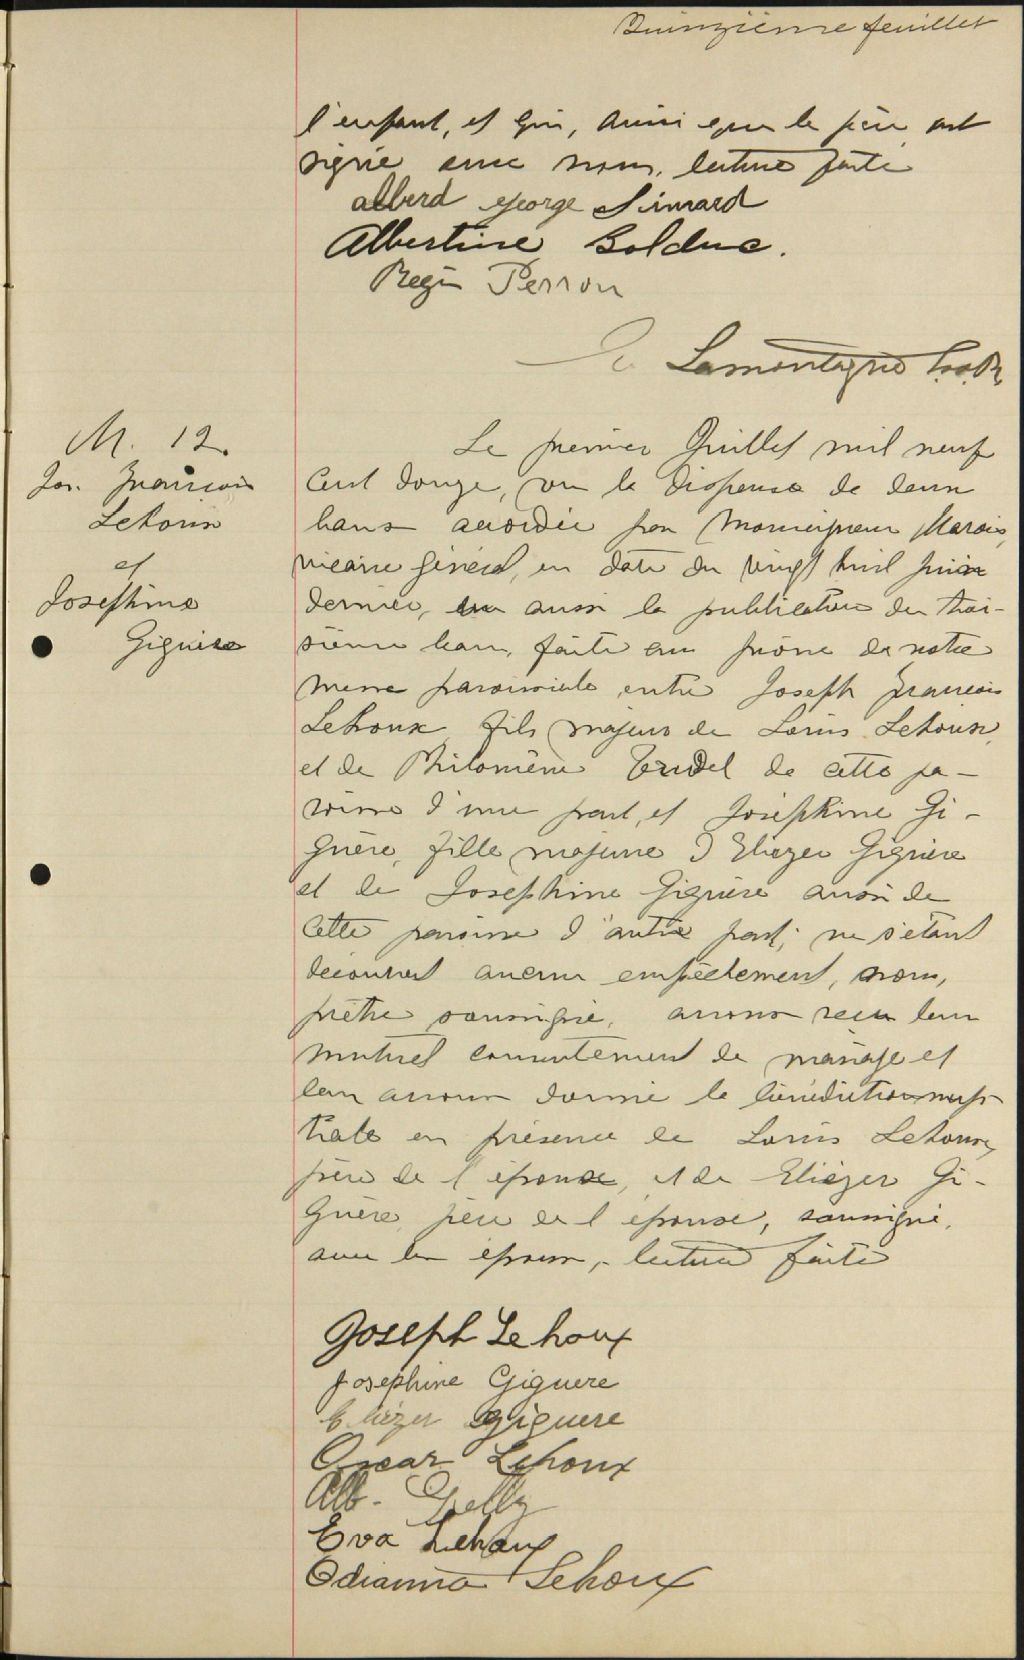 Quinzième feuillet
l'enfant, et qui, ainsi que le père ont
signé avec nous, lecture faite
alberd george Simard
Albertine Bolduc.
Regis Perron
Lamontagne
M. 12.
Jos. François
Lehoux
et
Josephine
Giguère
Le premier Juillet mil neuf
cent douze, vu la dispense de deux
bans accordée par Monseigneur Marois,
vicaire général, en date du vingt huit juin
dernier, vu aussi la publication du troi-
sième ban, faite au prône de notre
messe paroissiale entre Joseph François
Lehoux fils majeur de Louis Lehoux,
et de Philomène Trudel de cette pa-
roisse d'une part, et Joséphine Gi-
guère, fille majeure d'Eliezer Giguère
et de Josephine Giguère aussi de
cette paroisse d'autre part; ne s'étant
découvert aucun empêchement, nous,
prêtre soussigné, avons reçu leur
mutuel consentement de mariage et
leur avons donné la bénédiction nup-
tiale en présence de Louis Lehoux,
père de l'époux, et de Eliézer Gi-
guère, père de l'épouse, soussigné,
avec les époux, lecture faite
Joseph Lehoux
Josephine Giguere
Eliézer Giguere
Oscar Lehoux
Alb. Gelly
Eva Lehoux
Odianna Lehoux